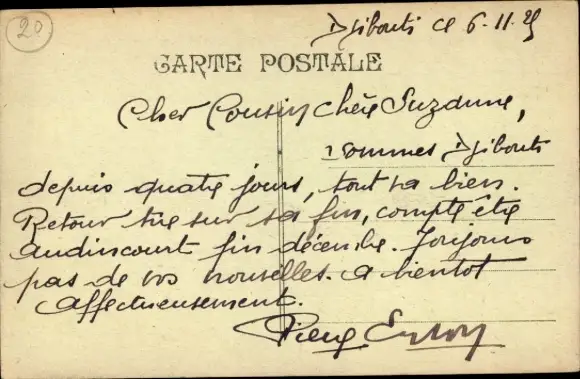 20
Djibouti ce 6.11.25
CARTE POSTALE
Cher Cousin, chère Suzanne,
sommes Djibouti
depuis quatre jours, tout va bien.
Retour tire sur sa fin, compte être
audincourt fin décembre. Toujours
pas de vos nouvelles. a bientot
affectueusement.
Pierre